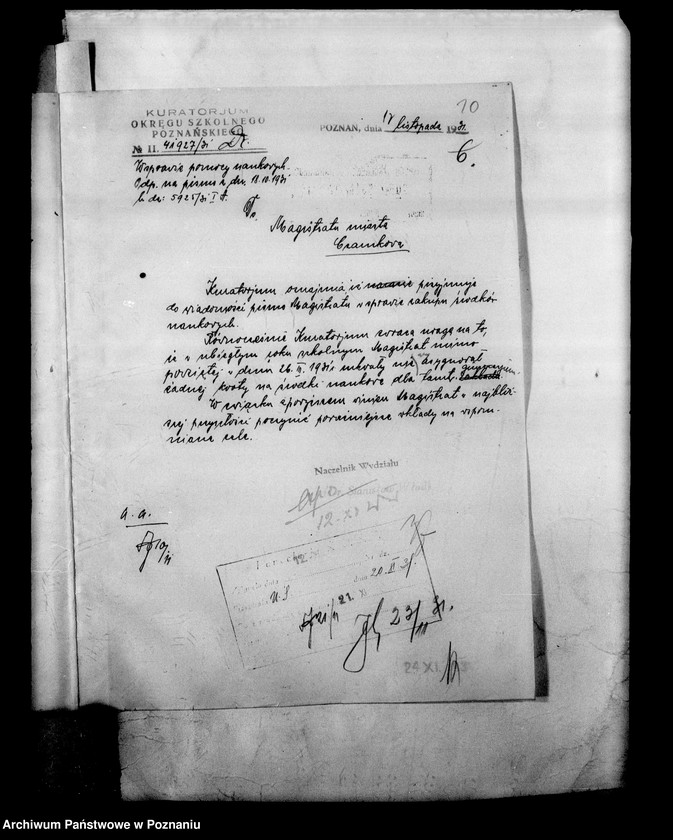 10
KURATORJUM
OKRĘGU SZKOLNEGO
POZNAŃSKIEGO
№ II. 41927/31
POZNAŃ, dnia 17 listopada 1931
6.
W sprawie pomocy naukowych.
Odp. na pismo z dn. 12.10.1931
l. dz: 5925/31 I
Do
Magistratu miasta
Czarnkowa
Kuratorjum oznajmia iż przyjmuje
do wiadomości pismo Magistratu w sprawie zakupu środków
naukowych.
Równocześnie Kuratorjum zwraca uwagę na to,
że w ubiegłym roku szkolnym Magistrat mimo
powziętej w dniu 26. II. 1931 r. uchwały nie asygnował
żadnej kwoty na środki naukowe dla tamt. gimnazjum.
W związku z powyższem winien Magistrat w najbliż-
szej przyszłości poczynić poważniejsze wkłady na wspom-
niane cele.
Naczelnik Wydziału
12.XI
a. a.
20. II 31.
21. XI
23/11 31.
24 XI.
Archiwum Państwowe w Poznaniu